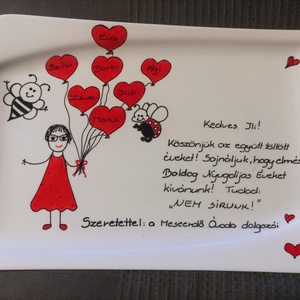 Éva
Szilvi
Bertai
Niki
Zsuzsi
Ildi
Manci
Kedves Ili!
Köszönjük az együtt töltött
éveket! Sajnáljuk, hogy elmész
Boldog Nyugdíjas Éveket
kívánunk! Tudod:
„NEM SÍRUNK!"
Szeretettel: a Meseerdő Óvoda dolgozói